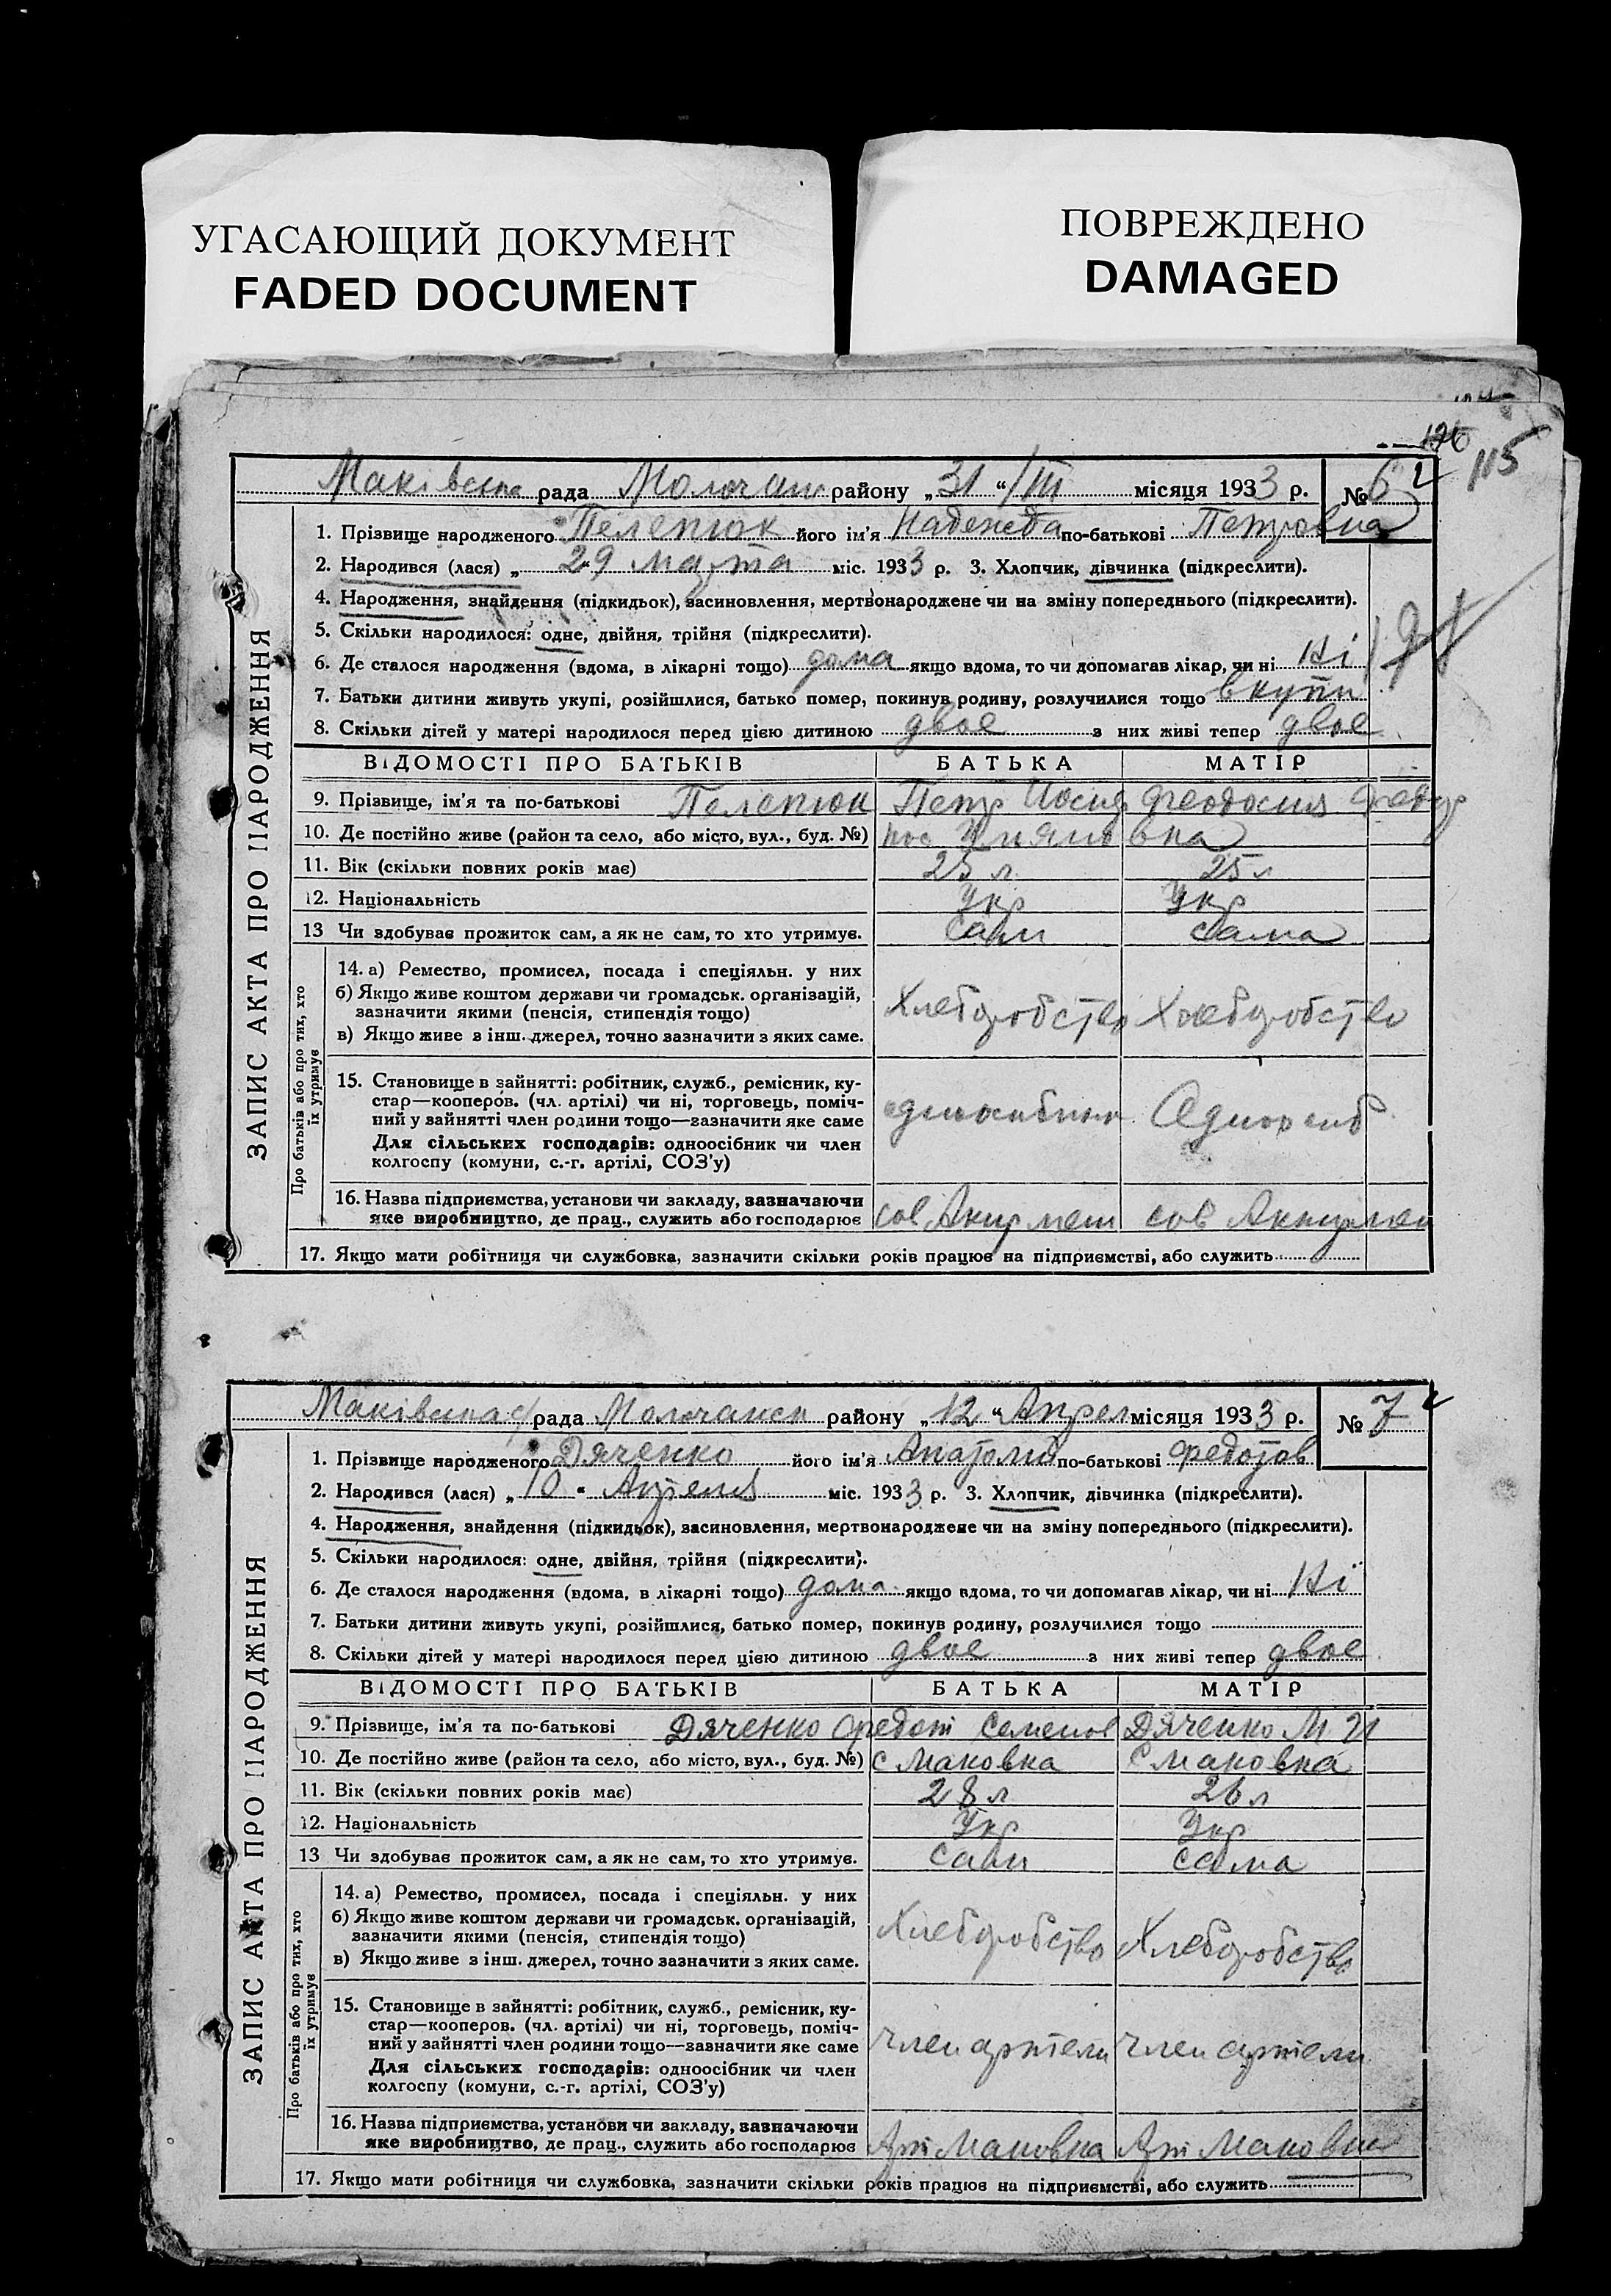 УГАСАЮЩИЙ ДОКУМЕНТ
FADED DOCUMENT
ПОВРЕЖДЕНО
DAMAGED
126
115
Маківська рада Молочан району „31“/III місяця 1933 р. № 6
1. Прізвище народженого Пелепюк його ім'я Надежда по-батькові Петровна
2. Народився (лася) „ 29 марта міс. 1933 р. 3. Хлопчик, дівчинка (підкреслити).
4. Народження, знайдення (підкидьок), засиновлення, мертвонароджене чи на зміну попереднього (підкреслити).
5. Скільки народилося: одне, двійня, трійня (підкреслити).
6. Де сталося народження (вдома, в лікарні тощо) дома якщо вдома, то чи допомагав лікар, чи ні Ні
7. Батьки дитини живуть укупі, розійшлися, батько помер, покинув родину, розлучилися тощо вкупи
8. Скільки дітей у матері народилося перед цією дитиною двое з них живі тепер двое
ЗАПИС АКТА ПРО НАРОДЖЕННЯ
ВІДОМОСТІ ПРО БАТЬКІВ БАТЬКА МАТІР
9. Прізвище, ім'я та по-батькові Пелепюк Петр Иосиф Феодосия Федор
10. Де постійно живе (район та село, або місто, вул., буд. №) вка
11. Вік (скільки повних років має) 25 л 25 л
12. Національність Укр Укр
13 Чи здобуває прожиток сам, а як не сам, то хто утримує. сам сама
Про батьків або про тих, хто їх утримує
14. а) Ремество, промисел, посада і спеціяльн. у них
б) Якщо живе коштом держави чи громадськ. організацій,
зазначити якими (пенсія, стипендія тощо)
в) Якщо живе з інш. джерел, точно зазначити з яких саме.
Хлеборобство Хлеборобство
15. Становище в зайнятті: робітник, служб., ремісник, ку-
стар—кооперов. (чл. артілі) чи ні, торговець, поміч-
ний у зайнятті член родини тощо—зазначити яке саме
Для сільських господарів: одноосібник чи член
колгоспу (комуни, с.-г. артілі, СОЗ'у)
16. Назва підприємства, установи чи закладу, зазначаючи
яке виробництво, де прац., служить або господарює сов сов
17. Якщо мати робітниця чи службовка, зазначити скільки років працює на підприємстві, або служить
Маківська с/рада Молочанск району „12“ Апрел місяця 1933 р. № 7
1. Прізвище народженого Дяченко його ім'я Анатолий по-батькові Федотов
2. Народився (лася) „ 10 “ Апреля міс. 1933 р. 3. Хлопчик, дівчинка (підкреслити).
4. Народження, знайдення (підкидьок), засиновлення, мертвонароджене чи на зміну попереднього (підкреслити).
5. Скільки народилося: одне, двійня, трійня (підкреслити).
6. Де сталося народження (вдома, в лікарні тощо) дома якщо вдома, то чи допомагав лікар, чи ні Ні
7. Батьки дитини живуть укупі, розійшлися, батько помер, покинув родину, розлучилися тощо
8. Скільки дітей у матері народилося перед цією дитиною двое з них живі тепер двое
ЗАПИС АКТА ПРО НАРОДЖЕННЯ
ВІДОМОСТІ ПРО БАТЬКІВ БАТЬКА МАТІР
9. Прізвище, ім'я та по-батькові Дяченко Федот Семенов Дяченко М И
10. Де постійно живе (район та село, або місто, вул., буд. №) с Маковка с Маковка
11. Вік (скільки повних років має) 28 л 26 л
12. Національність Укр Укр
13 Чи здобуває прожиток сам, а як не сам, то хто утримує. сам сама
Про батьків або про тих, хто їх утримує
14. а) Ремество, промисел, посада і спеціяльн. у них
б) Якщо живе коштом держави чи громадськ. організацій,
зазначити якими (пенсія, стипендія тощо)
в) Якщо живе з інш. джерел, точно зазначити з яких саме.
Хлеборобство Хлеборобство
15. Становище в зайнятті: робітник, служб., ремісник, ку-
стар—кооперов. (чл. артілі) чи ні, торговець, поміч-
ний у зайнятті член родини тощо—зазначити яке саме
Для сільських господарів: одноосібник чи член
колгоспу (комуни, с.-г. артілі, СОЗ'у)
член артели член артели
16. Назва підприємства, установи чи закладу, зазначаючи
яке виробництво, де прац., служить або господарює Арт Маковка Арт Маковка
17. Якщо мати робітниця чи службовка, зазначити скільки років працює на підприємстві, або служить